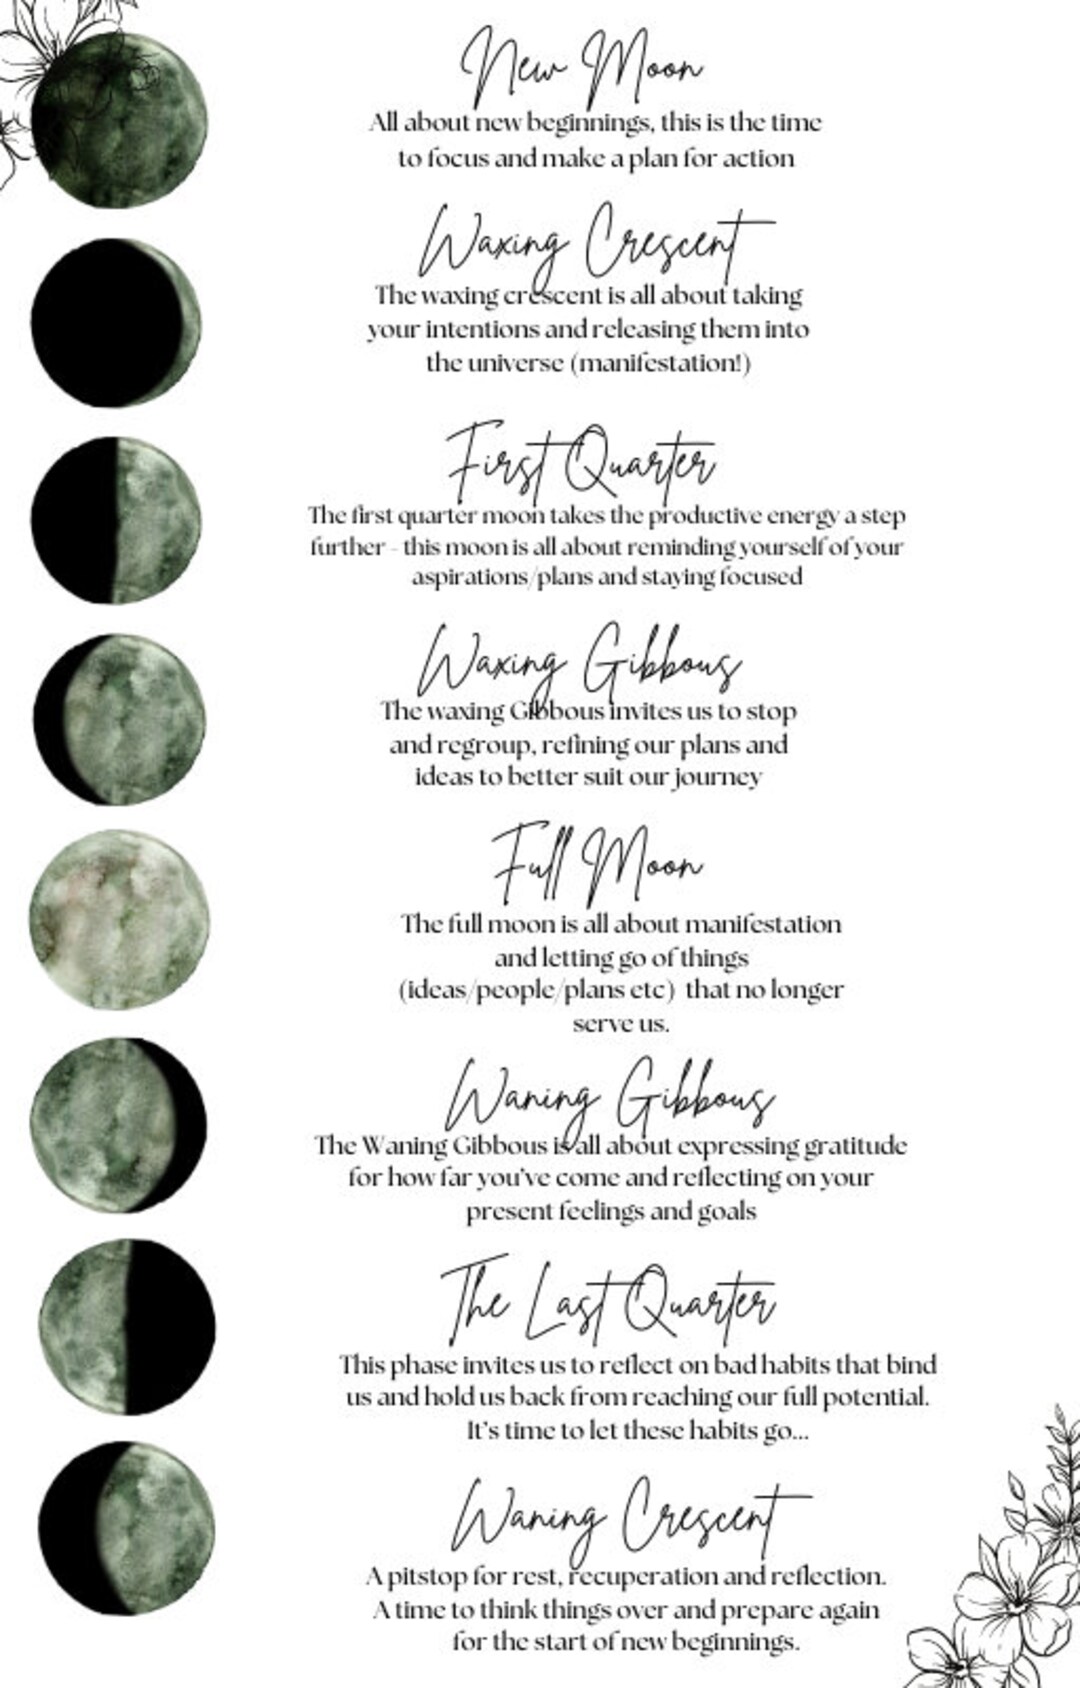 New Moon
All about new beginnings, this is the time
to focus and make a plan for action
Waxing Crescent
The waxing crescent is all about taking
your intentions and releasing them into
the universe (manifestation!)
First Quarter
The first quarter moon takes the productive energy a step
further - this moon is all about reminding yourself of your
aspirations/plans and staying focused
Waxing Gibbous
The waxing Gibbous invites us to stop
and regroup, refining our plans and
ideas to better suit our journey
Full Moon
The full moon is all about manifestation
and letting go of things
(ideas/people/plans etc) that no longer
serve us.
Waning Gibbous
The Waning Gibbous is all about expressing gratitude
for how far you've come and reflecting on your
present feelings and goals
The Last Quarter
This phase invites us to reflect on bad habits that bind
us and hold us back from reaching our full potential.
It's time to let these habits go...
Waning Crescent
A pitstop for rest, recuperation and reflection.
A time to think things over and prepare again
for the start of new beginnings.